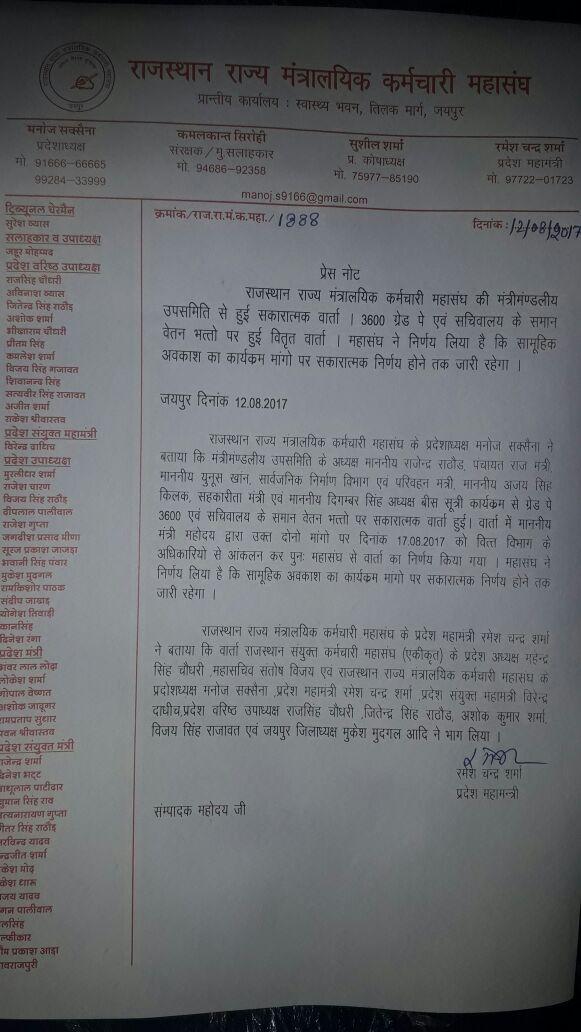 राजस्थान राज्य मंत्रालयिक कर्मचारी महासंघ
प्रान्तीय कार्यालय : स्वास्थ्य भवन, तिलक मार्ग, जयपुर
मनोज सक्सैना
प्रदेशाध्यक्ष
मो. 91666-66665
99284-33999
कमलकान्त सिरोही
संरक्षक/मु.सलाहकार
मो. 94686-92358
सुशील शर्मा
प्र. कोषाध्यक्ष
मो. 75977-85190
रमेश चन्द्र शर्मा
प्रदेश महामंत्री
मो. 97722-01723
manoj.s9166@gmail.com
क्रमांक/राज.रा.मं.क.महा./1388
दिनांक : 12/08/2017
ट्रिब्यूनल चेरमैन
सुरेश व्यास
सलाहकार व उपाध्यक्ष
जहूर मोहम्मद
प्रदेश वरिष्ठ उपाध्यक्ष
राजसिंह चौधरी
अविनाश व्यास
जितेन्द्र सिंह राठौड़
अशोक शर्मा
भीखाराम चौधरी
प्रीतम सिंह
कमलेश शर्मा
विजय सिंह गजावत
शिवानन्द सिंह
सत्यवीर सिंह राजावत
अजीत शर्मा
राकेश श्रीवास्तव
प्रदेश संयुक्त महामंत्री
विरेन्द्र दाधिच
प्रदेश उपाध्यक्ष
मुरलीधर शर्मा
राजेश चारण
विजय सिंह राठौड़
दीपलाल पालीवाल
राजेश गुप्ता
जगदीश प्रसाद मीणा
सूरज प्रकाश जाजड़ा
भवानी सिंह पंवार
मुकेश मुदगल
रामकिशोर पाठक
संदीप जाखड़
योगेश तिवाड़ी
कानसिंह
दिनेश रंगा
प्रदेश मंत्री
भंवर लाल लोढ़ा
लोकेश शर्मा
गोपाल वैष्णत
अशोक जादूगर
रामप्रताप सुथार
पवन श्रीवास्तव
प्रदेश संयुक्त मंत्री
राजेन्द्र शर्मा
दिनेश भट्ट
नाथूलाल पाटीदार
गुमान सिंह राव
सत्यनारायण गुप्ता
सिंह राठौड़
अरविन्द यादव
इन्द्रजीत शर्मा
केश मोढ़
केश धारू
जय यादव
गन पालीवाल
लसिंह
ल्फीकार
ोम प्रकाश आढ़ा
प्रेस नोट
राजस्थान राज्य मंत्रालयिक कर्मचारी महासंघ की मंत्रीमंण्डलीय
उपसमिति से हुई सकारात्मक वार्ता । 3600 ग्रेड पे एवं सचिवालय के समान
वेतन भत्तो पर हुई वितृत वार्ता । महासंघ ने निर्णय लिया है कि सामूहिक
अवकाश का कार्यक्रम मांगो पर सकारात्मक निर्णय होने तक जारी रहेगा ।
जयपुर दिनांक 12.08.2017
राजस्थान राज्य मंत्रालयिक कर्मचारी महासंघ के प्रदेशाध्यक्ष मनोज सक्सैना ने
बताया कि मंत्रीमण्डलीय उपसमिति के अध्यक्ष माननीय राजेन्द्र राठौड, पंचायत राज मंत्री,
माननीय युनूस खांन, सार्वजनिक निर्माण विभाग एवं परिवहन मंत्री, माननीय अजय सिंह
किलक, सहकारीता मंत्री एवं माननीय दिगम्बर सिंह अध्यक्ष बीस सूत्री कार्यक्रम से ग्रेड पे
3600 एवं सचिवालय के समान वेतन भत्तो पर सकारात्मक वार्ता हुई। वार्ता में माननीय
मंत्री महोदय द्वारा उक्त दोनो मांगो पर दिनांक 17.08.2017 को वित्त विभाग के
अधिकारियो से आंकलन कर पुनः महासंघ से वार्ता का निर्णय किया गया । महासंघ ने
निर्णय लिया है कि सामूहिक अवकाश का कार्यक्रम मांगो पर सकारात्मक निर्णय होने तक
जारी रहेगा ।
राजस्थान राज्य मंत्रालयिक कर्मचारी महासंघ के प्रदेश महामंत्री रमेश चन्द्र शर्मा
ने बताया कि वार्ता राजस्थान संयुक्त कर्मचारी महासंघ (एकीकृत) के प्रदेश अध्यक्ष महेन्द्र
सिंह चौधरी ,महासचिव संतोष विजय एवं राजस्थान राज्य मंत्रालयिक कर्मचारी महासंघ के
प्रदोशध्यक्ष मनोज सक्सैना ,प्रदेश महामंत्री रमेश चन्द्र शर्मा ,प्रदेश संयुक्त महामंत्री विरेन्द्र
दाधीच,प्रदेश वरिष्ठ उपाध्यक्ष राजसिंह चौधरी ,जितेन्द्र सिंह राठौड, अशोक कुमार शर्मा,
विजय सिंह राजावत एवं जयपुर जिलाध्यक्ष मुकेश मुदगल आदि ने भाग लिया ।
रमेश चन्द्र शर्मा
प्रदेश महामन्त्री
सम्पादक महोदय जी